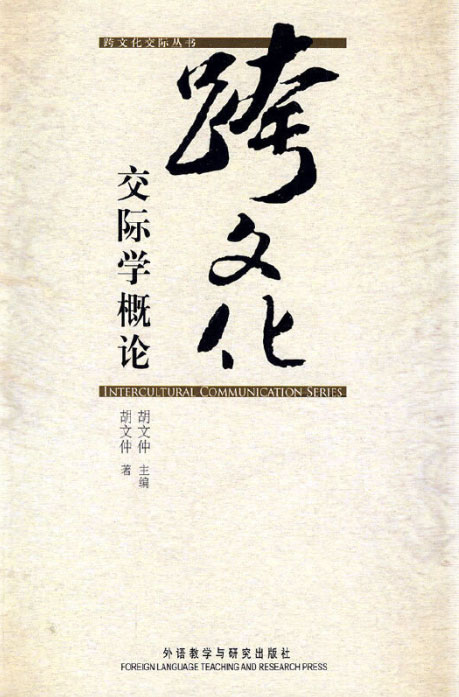 跨文化交际丛书
跨文化
交际学概论
INTERCULTURAL COMMUNICATION SERIES
胡文仲 主编
胡文仲 著
外语教学与研究出版社
FOREIGN LANGUAGE TEACHING AND RESEARCH PRESS